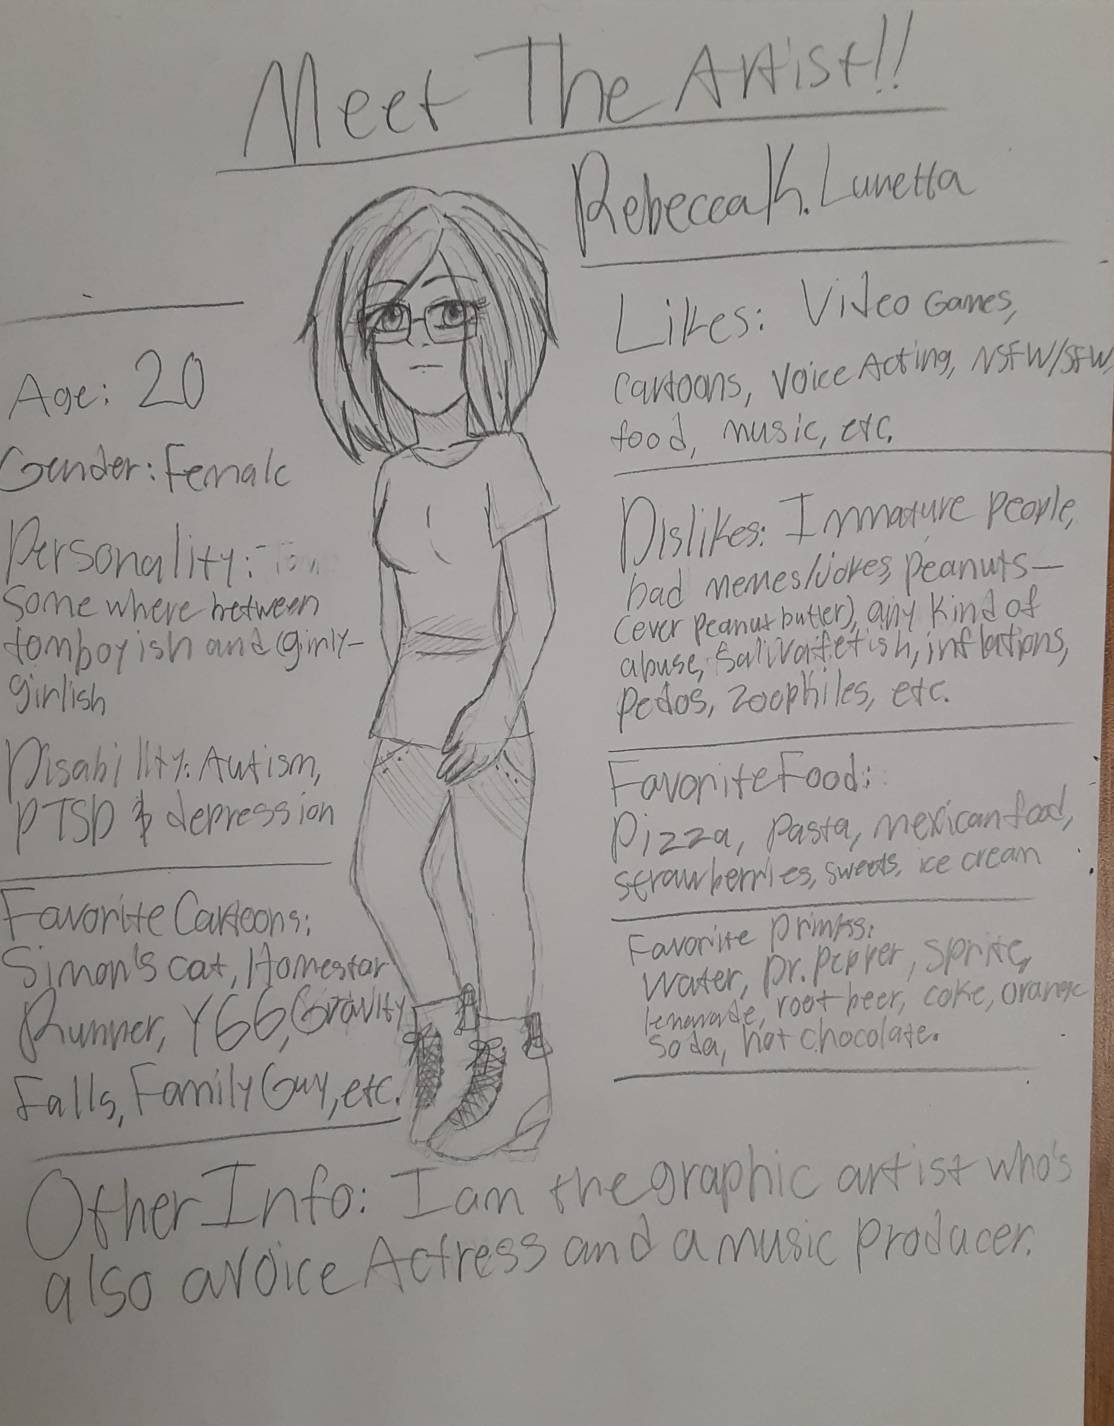 Meet The Artist!!
Rebecca K. Lunetta
Age: 20
Gender: Female
Personality:
Some where between
tomboyish and girly-
girlish
Disability: Autism,
PTSD & depression
Favorite Cartoons:
Simon's cat, Homestar
Runner, YGG, Gravity
Falls, Family Guy, etc.
Likes: Video Games,
Cartoons, Voice Acting, NSFW/SFW,
food, music, etc.
Dislikes: Immature people,
bad memes/jokes, peanuts—
(ever peanut butter), any kind of
abuse, Saliva fetish, inflations,
pedos, zoophiles, etc.
Favorite Food:
Pizza, Pasta, mexican food,
strawberries, sweets, ice cream
Favorite Drinks:
Water, Dr. Pepper, Sprite,
lemonade, root beer, coke, orange
soda, hot chocolate.
Other Info: I am the graphic artist who's
also a voice Actress and a music producer.